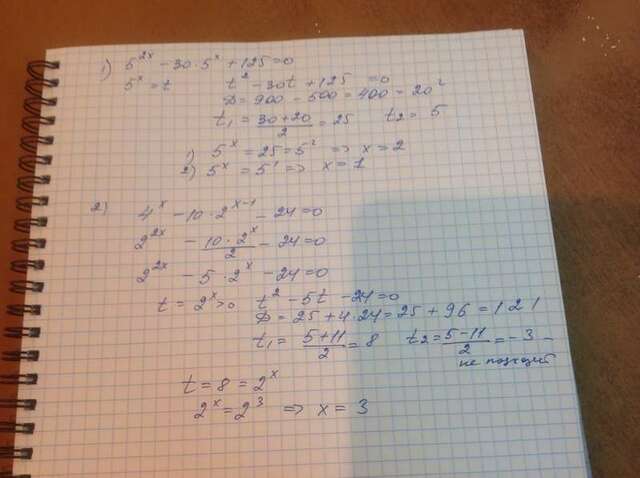 1) 5^2x - 30·5^x + 125 = 0
5^x = t t^2 - 30t + 125 = 0
D = 900 - 500 = 400 = 20^2
t1 = (30+20)/2 = 25 t2 = 5
1) 5^x = 25 = 5^2 => x = 2
2) 5^x = 5^1 => x = 1
2) 4^x - 10·2^(x-1) - 24 = 0
2^2x - (10·2^x)/2 - 24 = 0
2^2x - 5·2^x - 24 = 0
t = 2^x > 0 t^2 - 5t - 24 = 0
D = 25 + 4·24 = 25 + 96 = 121
t1 = (5+11)/2 = 8 t2 = (5-11)/2 = -3 -
не подходит
t = 8 = 2^x
2^x = 2^3 => x = 3